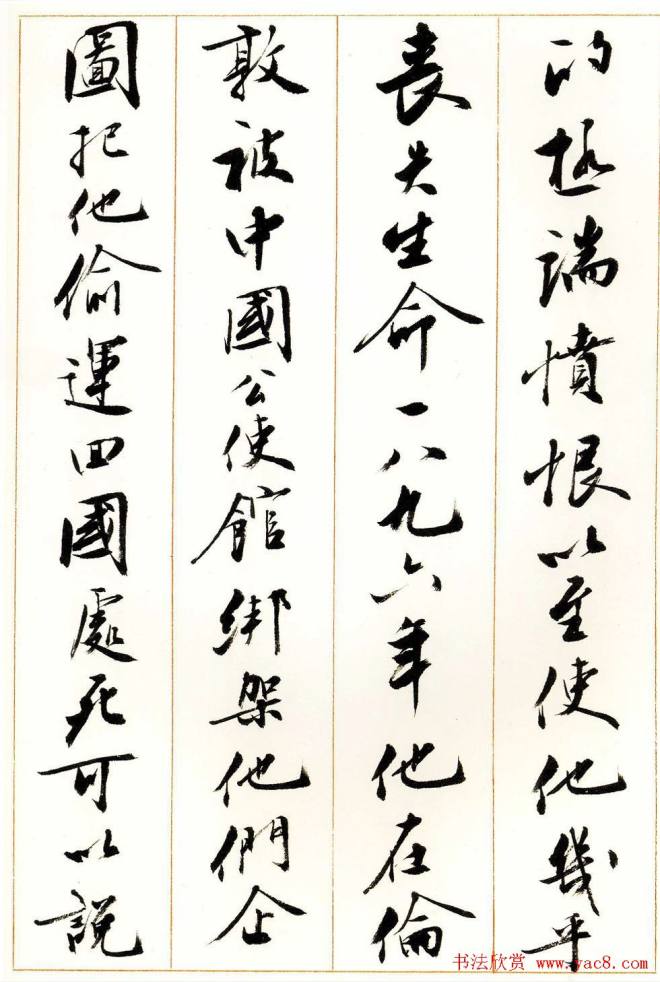 的極端憤恨以至使他幾乎
喪失生命一八九六年他在倫
敦被中國公使館綁架他們企
圖把他偷運回國處死可以說
书法欣赏 www.yac8.com